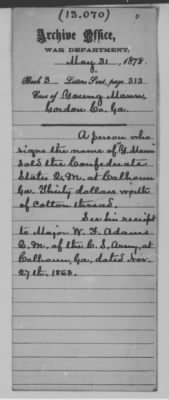 (13.070)
Archive Office,
WAR DEPARTMENT,
May 31, 1878.
Book 3 Letters Sent, page 313
Case of Young Mann,
Gordon Co. Ga.
A person who
signs the name of Y. Mann
sold the Confederate
State Q.M. at Calhoun
Ga. Thirty dollars worth
of Cotton thread.
See his receipt
to Major W. F. Adams
Q.M. of the C. S. Army, at
Calhoun, Ga. dated Nov.
27th. 1863.